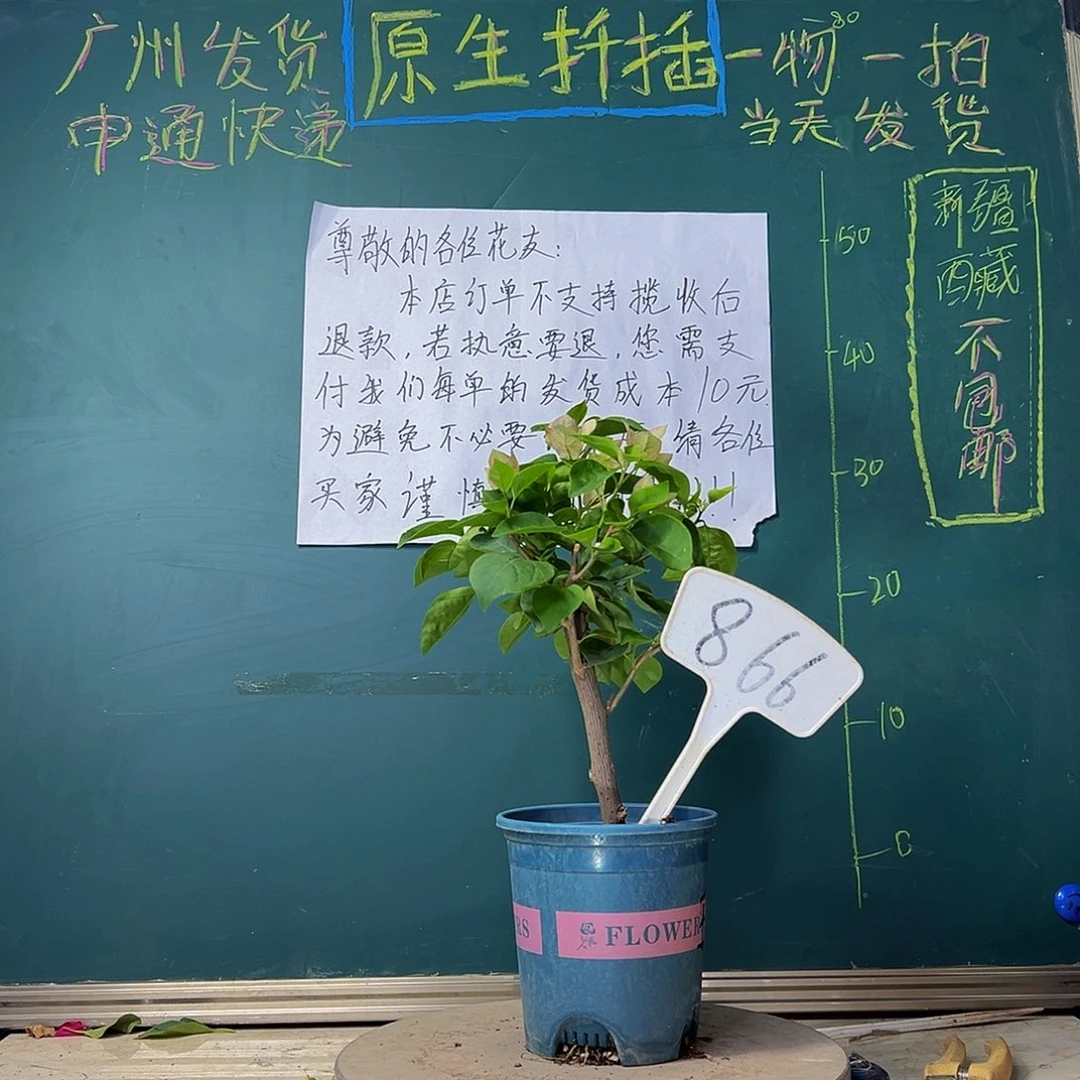 广州发货
申通快递
原生扦插
一物一拍
当天发货
80
新疆
西藏
不包邮
尊敬的各位花友:
本店订单不支持揽收后
退款,若执意要退,您需支
付我们每单的发货成本10元.
为避免不必要 请各位
买家谨慎 !!
50
40
30
20
10
0
866
RS
FLOWER